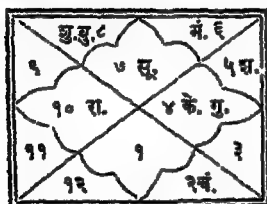 शु.बु.८ मं. ६
९ ७ सू. ५ श.
१० रा. ४ के. गु.
११ १ ३
१२ २चं.